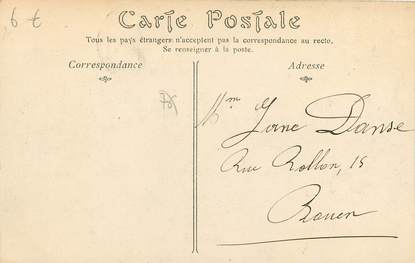 6 €
Carte Postale
Tous les pays étrangers n'acceptent pas la correspondance au recto.
Se renseigner à la poste.
Correspondance
Adresse
Mme Danse
Rue Rollon, 15
Rouen